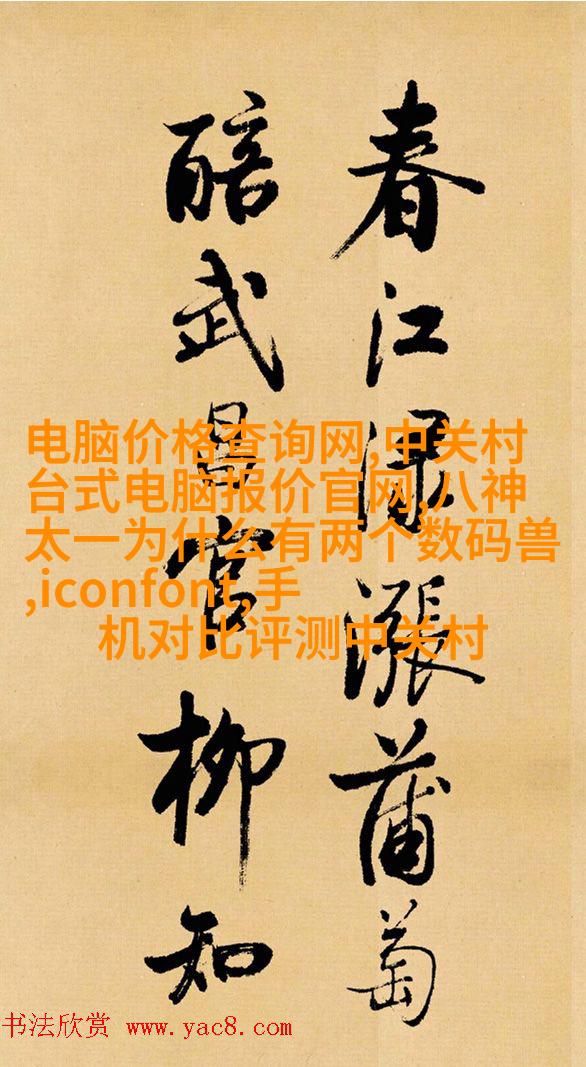 春江渌漲蒲萄
醅武昌官柳知
电脑价格查询网,中关村
台式电脑报价官网,八神
太一为什么有两个数码兽
,iconfont,手
机对比评测中关村
书法欣赏 www.yac8.com